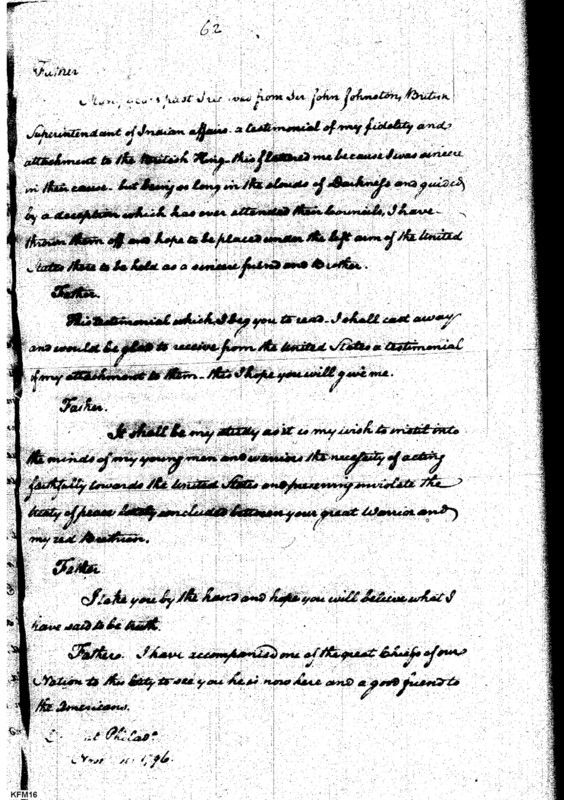 62
Father
Many years past I received from Sir John Johnston, British
Superintendant of Indian affairs a testimonial of my fidelity and
attachment to the British King. this flattered me because I was sincere
in their cause. but being so long in the clouds of Darkness and guided
by a deception which has ever attended their Councils, I have
thrown them off and hope to be placed under the left arm of the United
States there to be held as a sincere friend and Brother.
Father.
This testimonial which I beg you to read. I shall cast away
and would be glad to receive from the United States a testimonial
of my attachment to them – this I hope you will give me.
Father.
It shall be my study as it is my wish to instil into
the minds of my young men and warriors the necessity of acting
faithfully towards the United States and preserving inviolate the
treaty of peace lately concluded between your great Warrior and
my red Brethren.
Father
I take you by the hand and hope you will believe what I
have said to be truth.
Father. I have accompanied one of the great Chiefs of our
Nation to this City to see you he is now here and a good friend to
the Americans.
at Philada.
1796.
KFM16